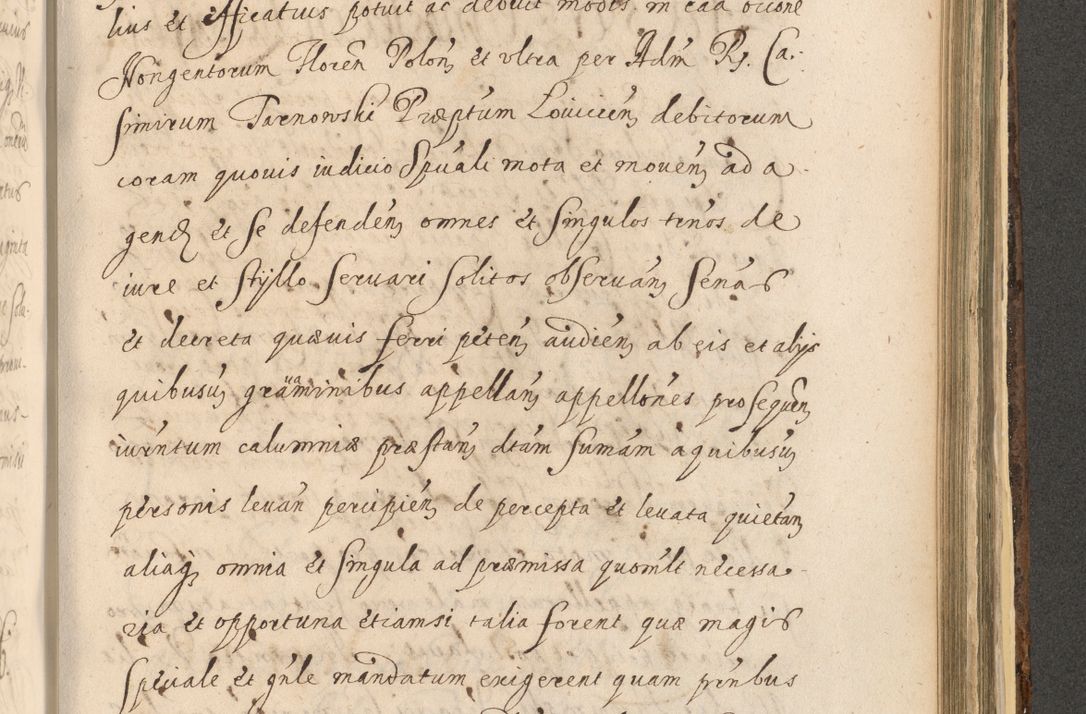 lius et efficatius potuit ac debuit modis. in ead occone
Nongentorum Floren Polon et vltra per Adm Rs. Ca-
simirum Tarnowski Præptum Louicien debitorum
coram quouis iudicio Spuali mota et mouen ad a-
gend et se defenden omnes et singulos tenos de
iure et styllo seruari solitos obseruan senas
et decreta quæuis ferri peten audien ab eis et alijs
quibusuis grauaminibus appellan appellones prosequen
iurentum calumniæ præstan dtam sumam a quibusuis
personis leuan percipien de percepta et leuata quietan
aliaq omnia et singula ad præmissa quomlt necessa-
ria et opportuna etiamsi talia forent quæ magis
speciale et gnle mandatum exigerent quam pntibus